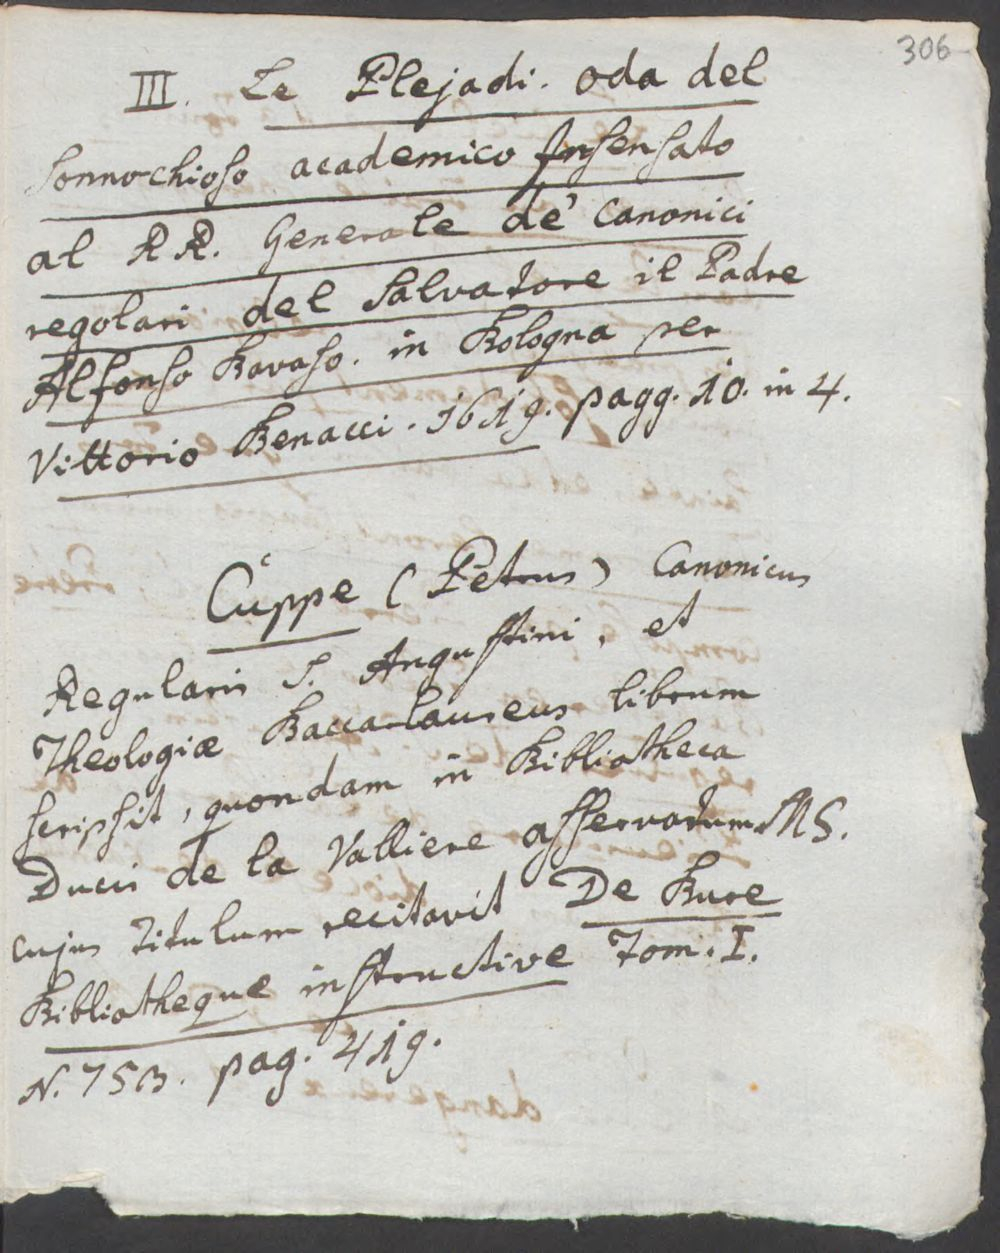 306
III. Le Plejadi. oda del
sonnochioso academico Insensato
al RR. Generale de' Canonici
regolari del Salvatore il Padre
Alfonso Bavaso. in Bologna per
Vittorio Benacci. 1619. pagg. 10. in 4.
Cuppe (Petrus) Canonicus
Regularis S. Augustini, et
Theologiæ Baccalaureus librum
scripsit, quondam in Bibliotheca
Ducis de la Valliere asservatum MS.
cujus titulum recitavit De Bure
Bibliotheque instructive Tom. I.
N. 753. pag. 419.